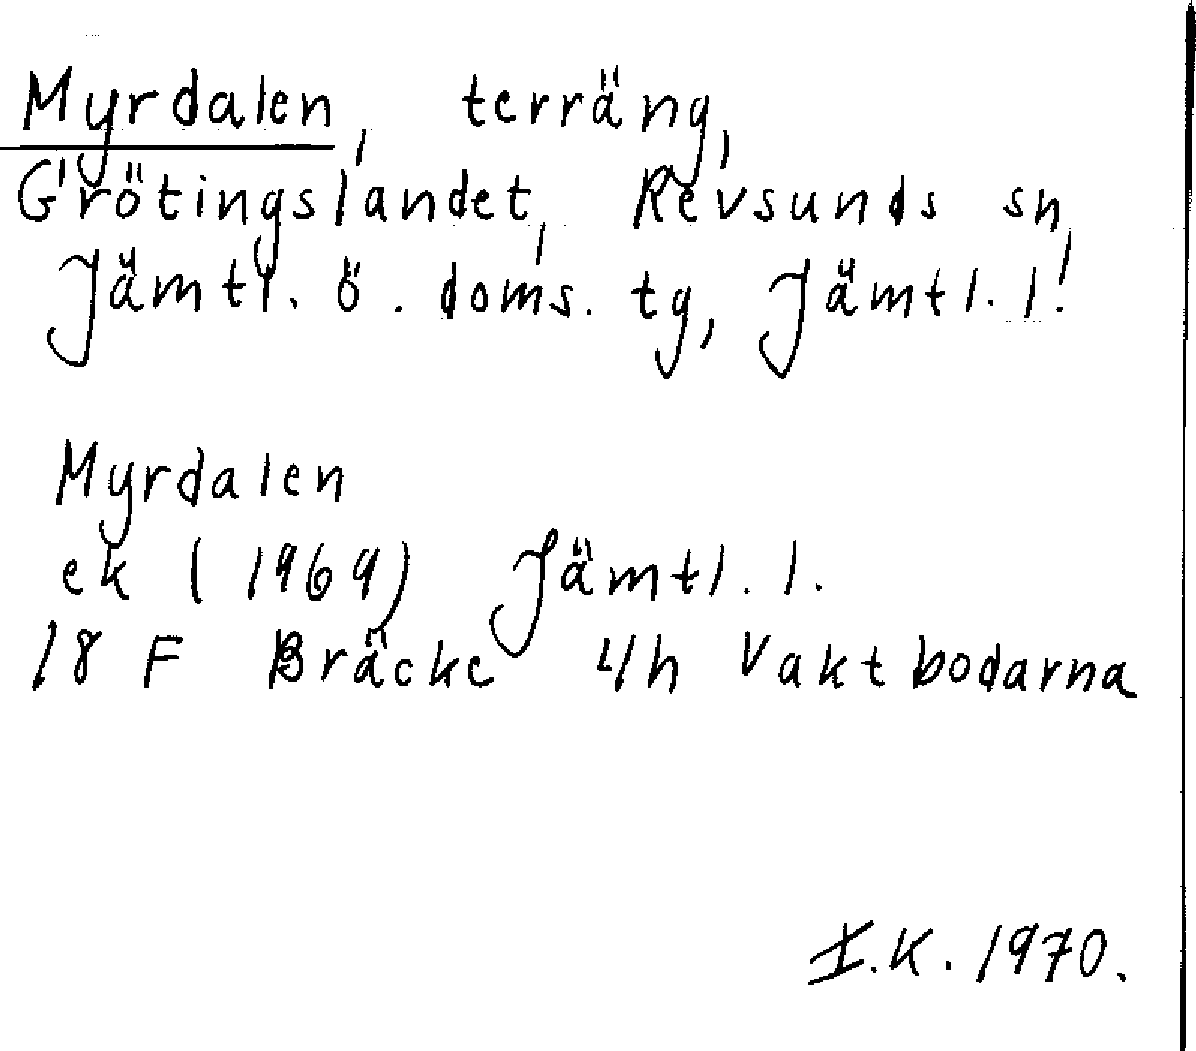 Myrdalen, terräng,
Grötingslandet, Revsunds sn,
Jämtl. ö. doms. tg, Jämtl. l.
Myrdalen
ek (1969) Jämtl. l.
18 F Bräcke 4h Vaktbodarna
I.K. 1970.